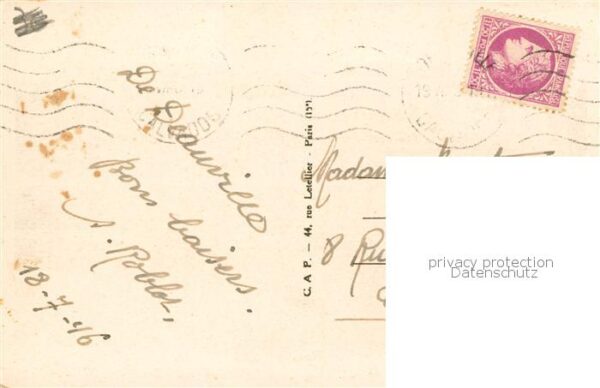 De Deauville
Bons baisers.
A. Roblot
18-7-46
CALVADOS
C. A P. — 44, rue Letellier - Paris (15e)
19
Madam
8 Ru
privacy protection
Datenschutz